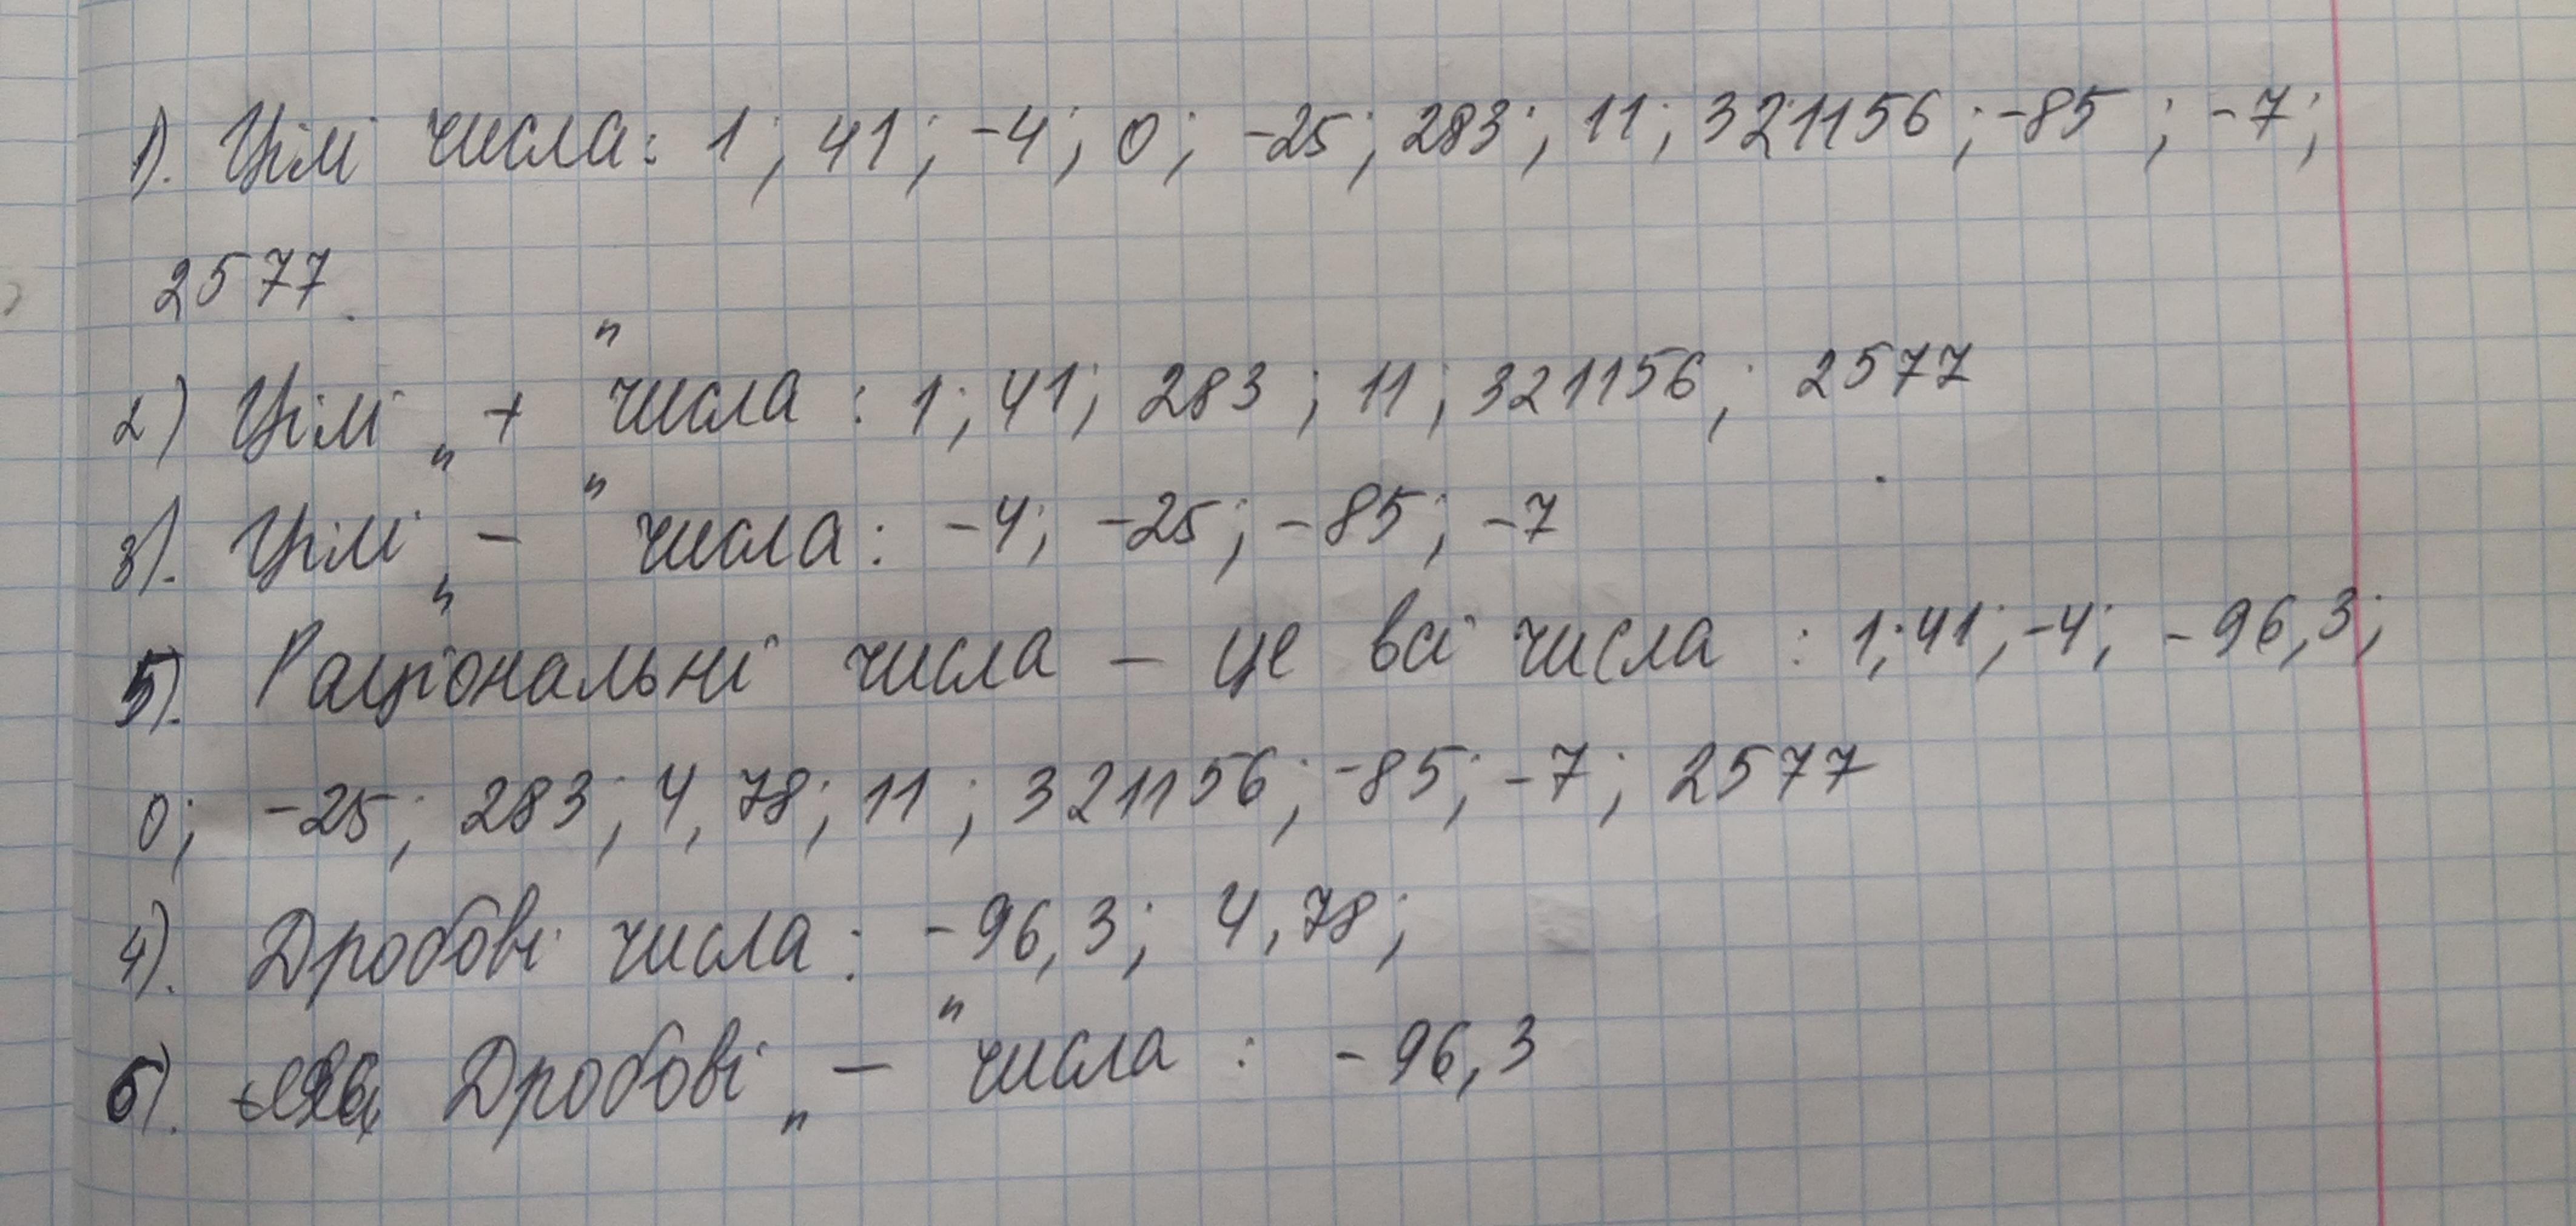 1). Цілі числа: 1; 41; -4; 0; -25; 283; 11; 321156; -85; -7;
2577.
2) Цілі „+" числа: 1; 41; 283; 11; 321156; 2577
3). Цілі „-" числа: -4; -25; -85; -7
5). Раціональні числа - це всі числа: 1; 41; -4; -96,3;
0; -25; 283; 4,78; 11; 321156; -85; -7; 2577
4). Дробові числа: -96,3; 4,78;
6). Дробові „-" числа: -96,3